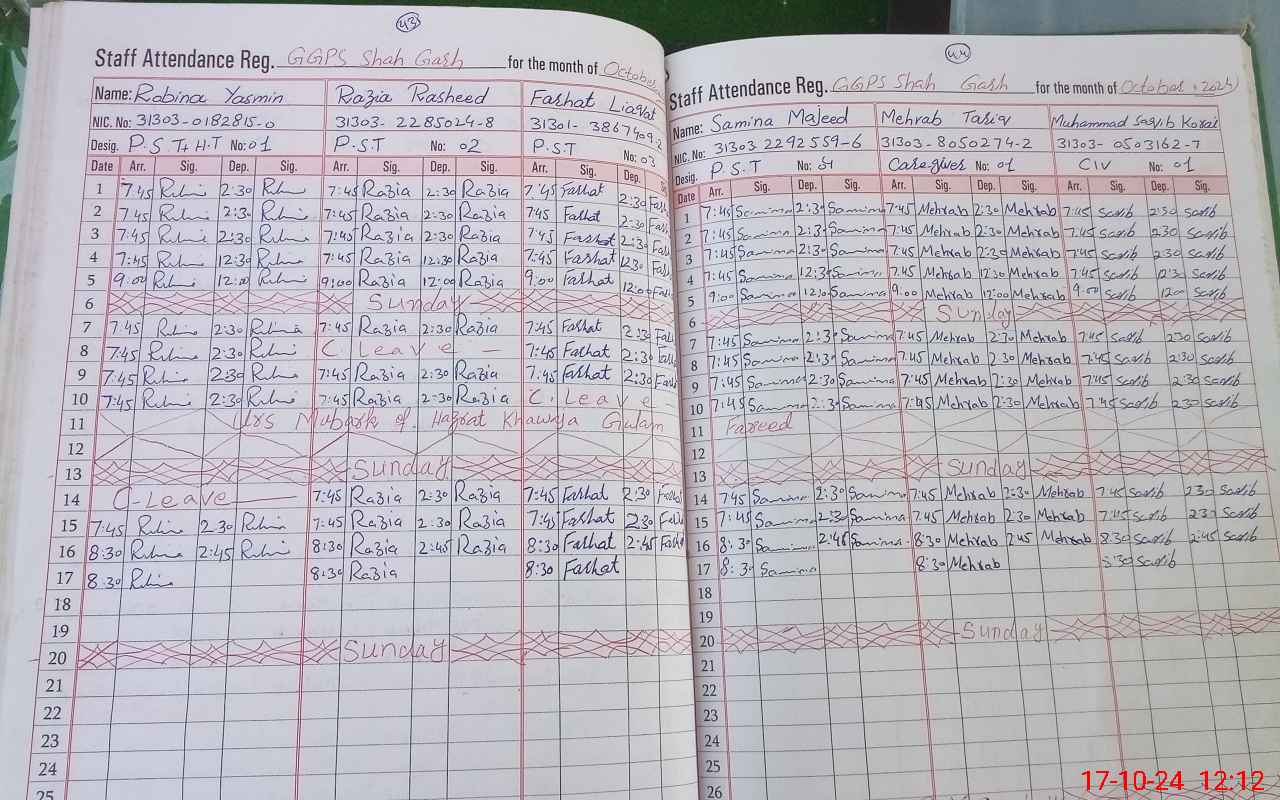 43
Staff Attendance Reg. GGPS Shah Garh for the month of October
Name: Robina Yasmin Razia Rasheed Farhat Liaqat
NIC. No: 31303-0182815-0 31303-2285024-8 31301-3867409-2
Desig. P.S.T+H.T No: 01 P.S.T No: 02 P.S.T No: 03
Date Arr. Sig. Dep. Sig. Arr. Sig. Dep. Sig. Arr. Sig. Dep.
1 7:45 2:30 7:45 Razia 2:30 Razia 7:45 Farhat 2:30
2 7:45 2:30 7:45 Razia 2:30 Razia 7:45 Farhat 2:30
3 7:45 2:30 7:45 Razia 2:30 Razia 7:45 Farhat 2:30
4 7:45 12:30 7:45 Razia 12:30 Razia 7:45 Farhat 12:30
5 9:00 12:00 9:00 Razia 12:00 Razia 9:00 Farhat 12:00
6 Sunday
7 7:45 2:30 7:45 Razia 2:30 Razia 7:45 Farhat 2:30
8 7:45 2:30 C. Leave 7:45 Farhat 2:30
9 7:45 2:30 7:45 Razia 2:30 Razia 7:45 Farhat 2:30
10 7:45 2:30 7:45 Razia 2:30 Razia C. Leave
11 Urs Mubark of. Hazrat Khawaja Gulam
12
13 Sunday
14 C-Leave 7:45 Razia 2:30 Razia 7:45 Farhat 2:30
15 7:45 2:30 7:45 Razia 2:30 Razia 7:45 Farhat 2:30
16 8:30 2:45 8:30 Razia 2:45 Razia 8:30 Farhat 2:45
17 8:30 8:30 Razia 8:30 Farhat
18
19
20 Sunday
21
22
23
24
44
Staff Attendance Reg. GGPS Shah Garh for the month of October, 2024
Name: Samina Majeed Mehrab Tariq Muhammad Saqib
NIC. No: 31303 2292559-6 31303-8050274-2 31303-0503162-7
Desig. P.S.T No: Caregiver No: 01 CIV No: 01
Date Arr. Sig. Dep. Sig. Arr. Sig. Dep. Sig. Arr. Sig. Dep. Sig.
1 7:45 Samina 2:30 Samina 7:45 Mehrab 2:30 Mehrab 7:45 Saqib 2:30 Saqib
2 7:45 Samina 2:30 Samina 7:45 Mehrab 2:30 Mehrab 7:45 Saqib 2:30 Saqib
3 7:45 Samina 2:30 Samina 7:45 Mehrab 2:30 Mehrab 7:45 Saqib 2:30 Saqib
4 7:45 Samina 12:30 Samina 7:45 Mehrab 12:30 Mehrab 7:45 Saqib 12:30 Saqib
5 9:00 Samina 12:00 Samina 9:00 Mehrab 12:00 Mehrab 9:00 Saqib 12:00 Saqib
6 Sunday
7 7:45 Samina 2:30 Samina 7:45 Mehrab 2:30 Mehrab 7:45 Saqib 2:30 Saqib
8 7:45 Samina 2:30 Samina 7:45 Mehrab 2:30 Mehrab 7:45 Saqib 2:30 Saqib
9 7:45 Samina 2:30 Samina 7:45 Mehrab 2:30 Mehrab 7:45 Saqib 2:30 Saqib
10 7:45 Samina 2:30 Samina 7:45 Mehrab 2:30 Mehrab 7:45 Saqib 2:30 Saqib
11 Fareed
12
13 Sunday
14 7:45 Samina 2:30 Samina 7:45 Mehrab 2:30 Mehrab 7:45 Saqib 2:30 Saqib
15 7:45 Samina 2:30 Samina 7:45 Mehrab 2:30 Mehrab 7:45 Saqib 2:30 Saqib
16 8:30 Samina 2:45 Samina 8:30 Mehrab 2:45 Mehrab 8:30 Saqib 2:45 Saqib
17 8:30 Samina 8:30 Mehrab 8:30 Saqib
18
19
20 Sunday
21
22
23
24
25
26
17-10-24 12:12